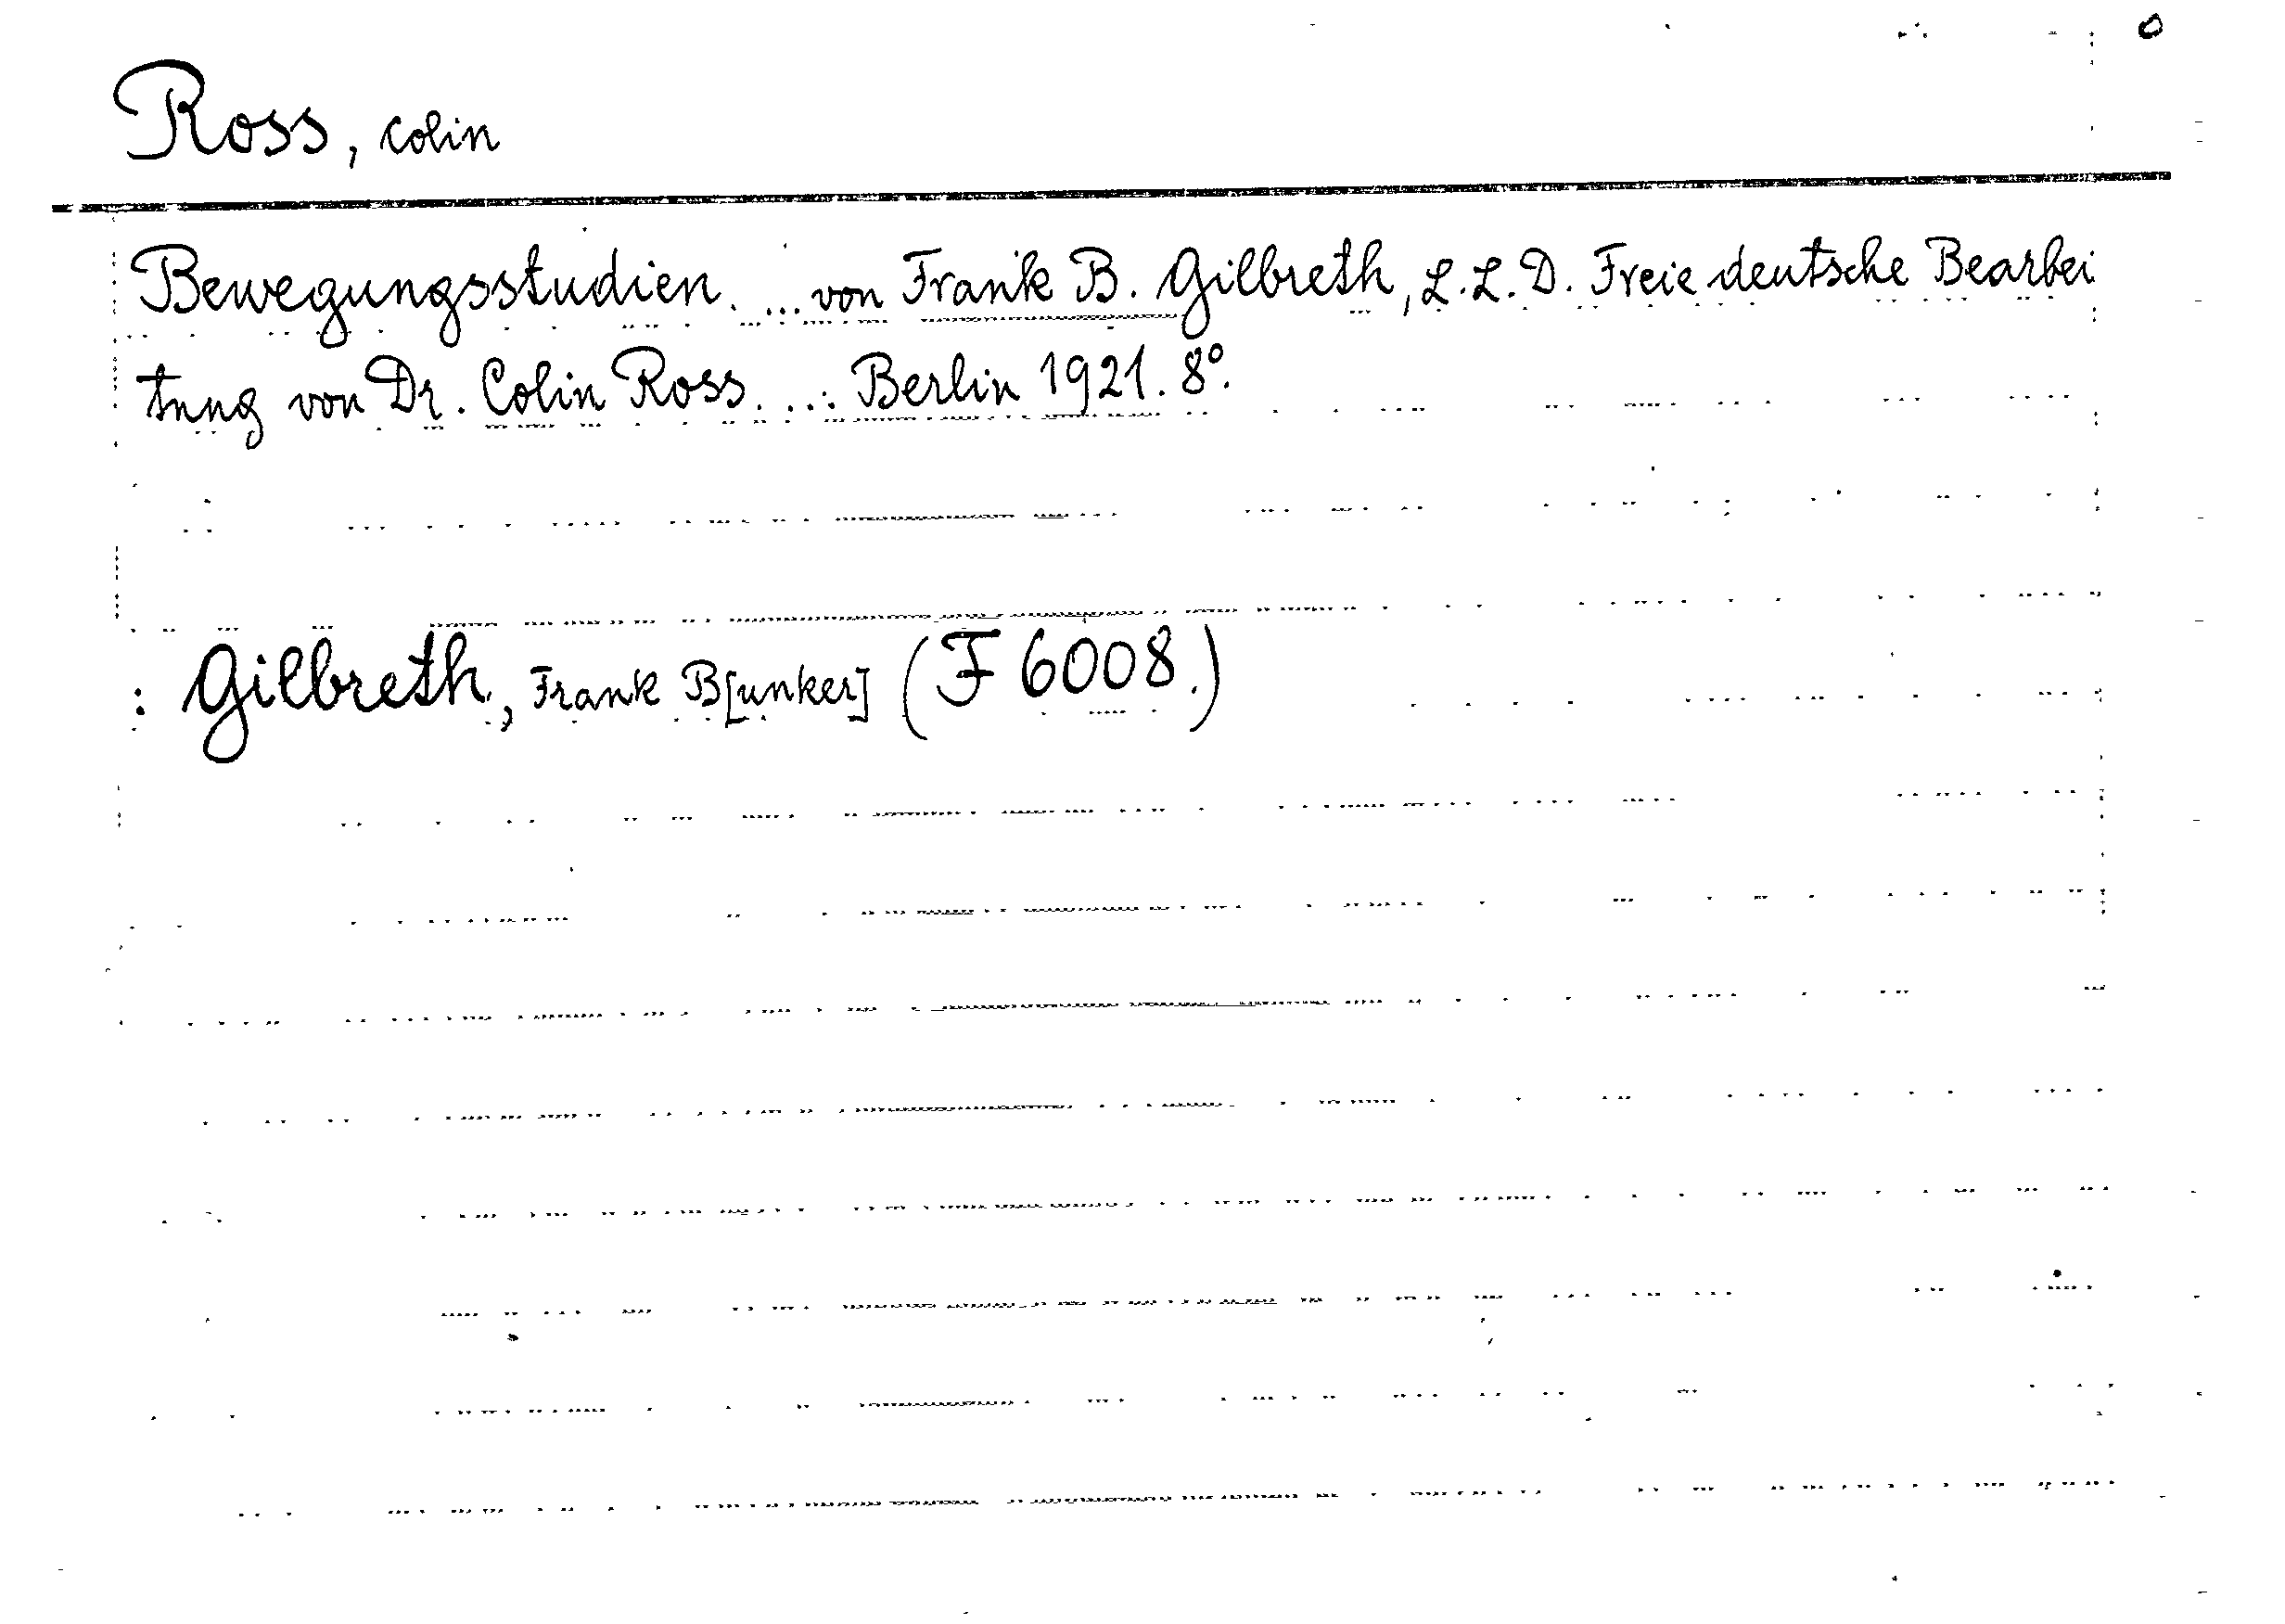 Ross, Colin
Bewegungsstudien. ... von Frank B. Gilbreth, L.L.D. Freie deutsche Bearbei
tung von Dr. Colin Ross. ... Berlin 1921. 8°.
: Gilbreth, Frank B[unker] (F 6008.)